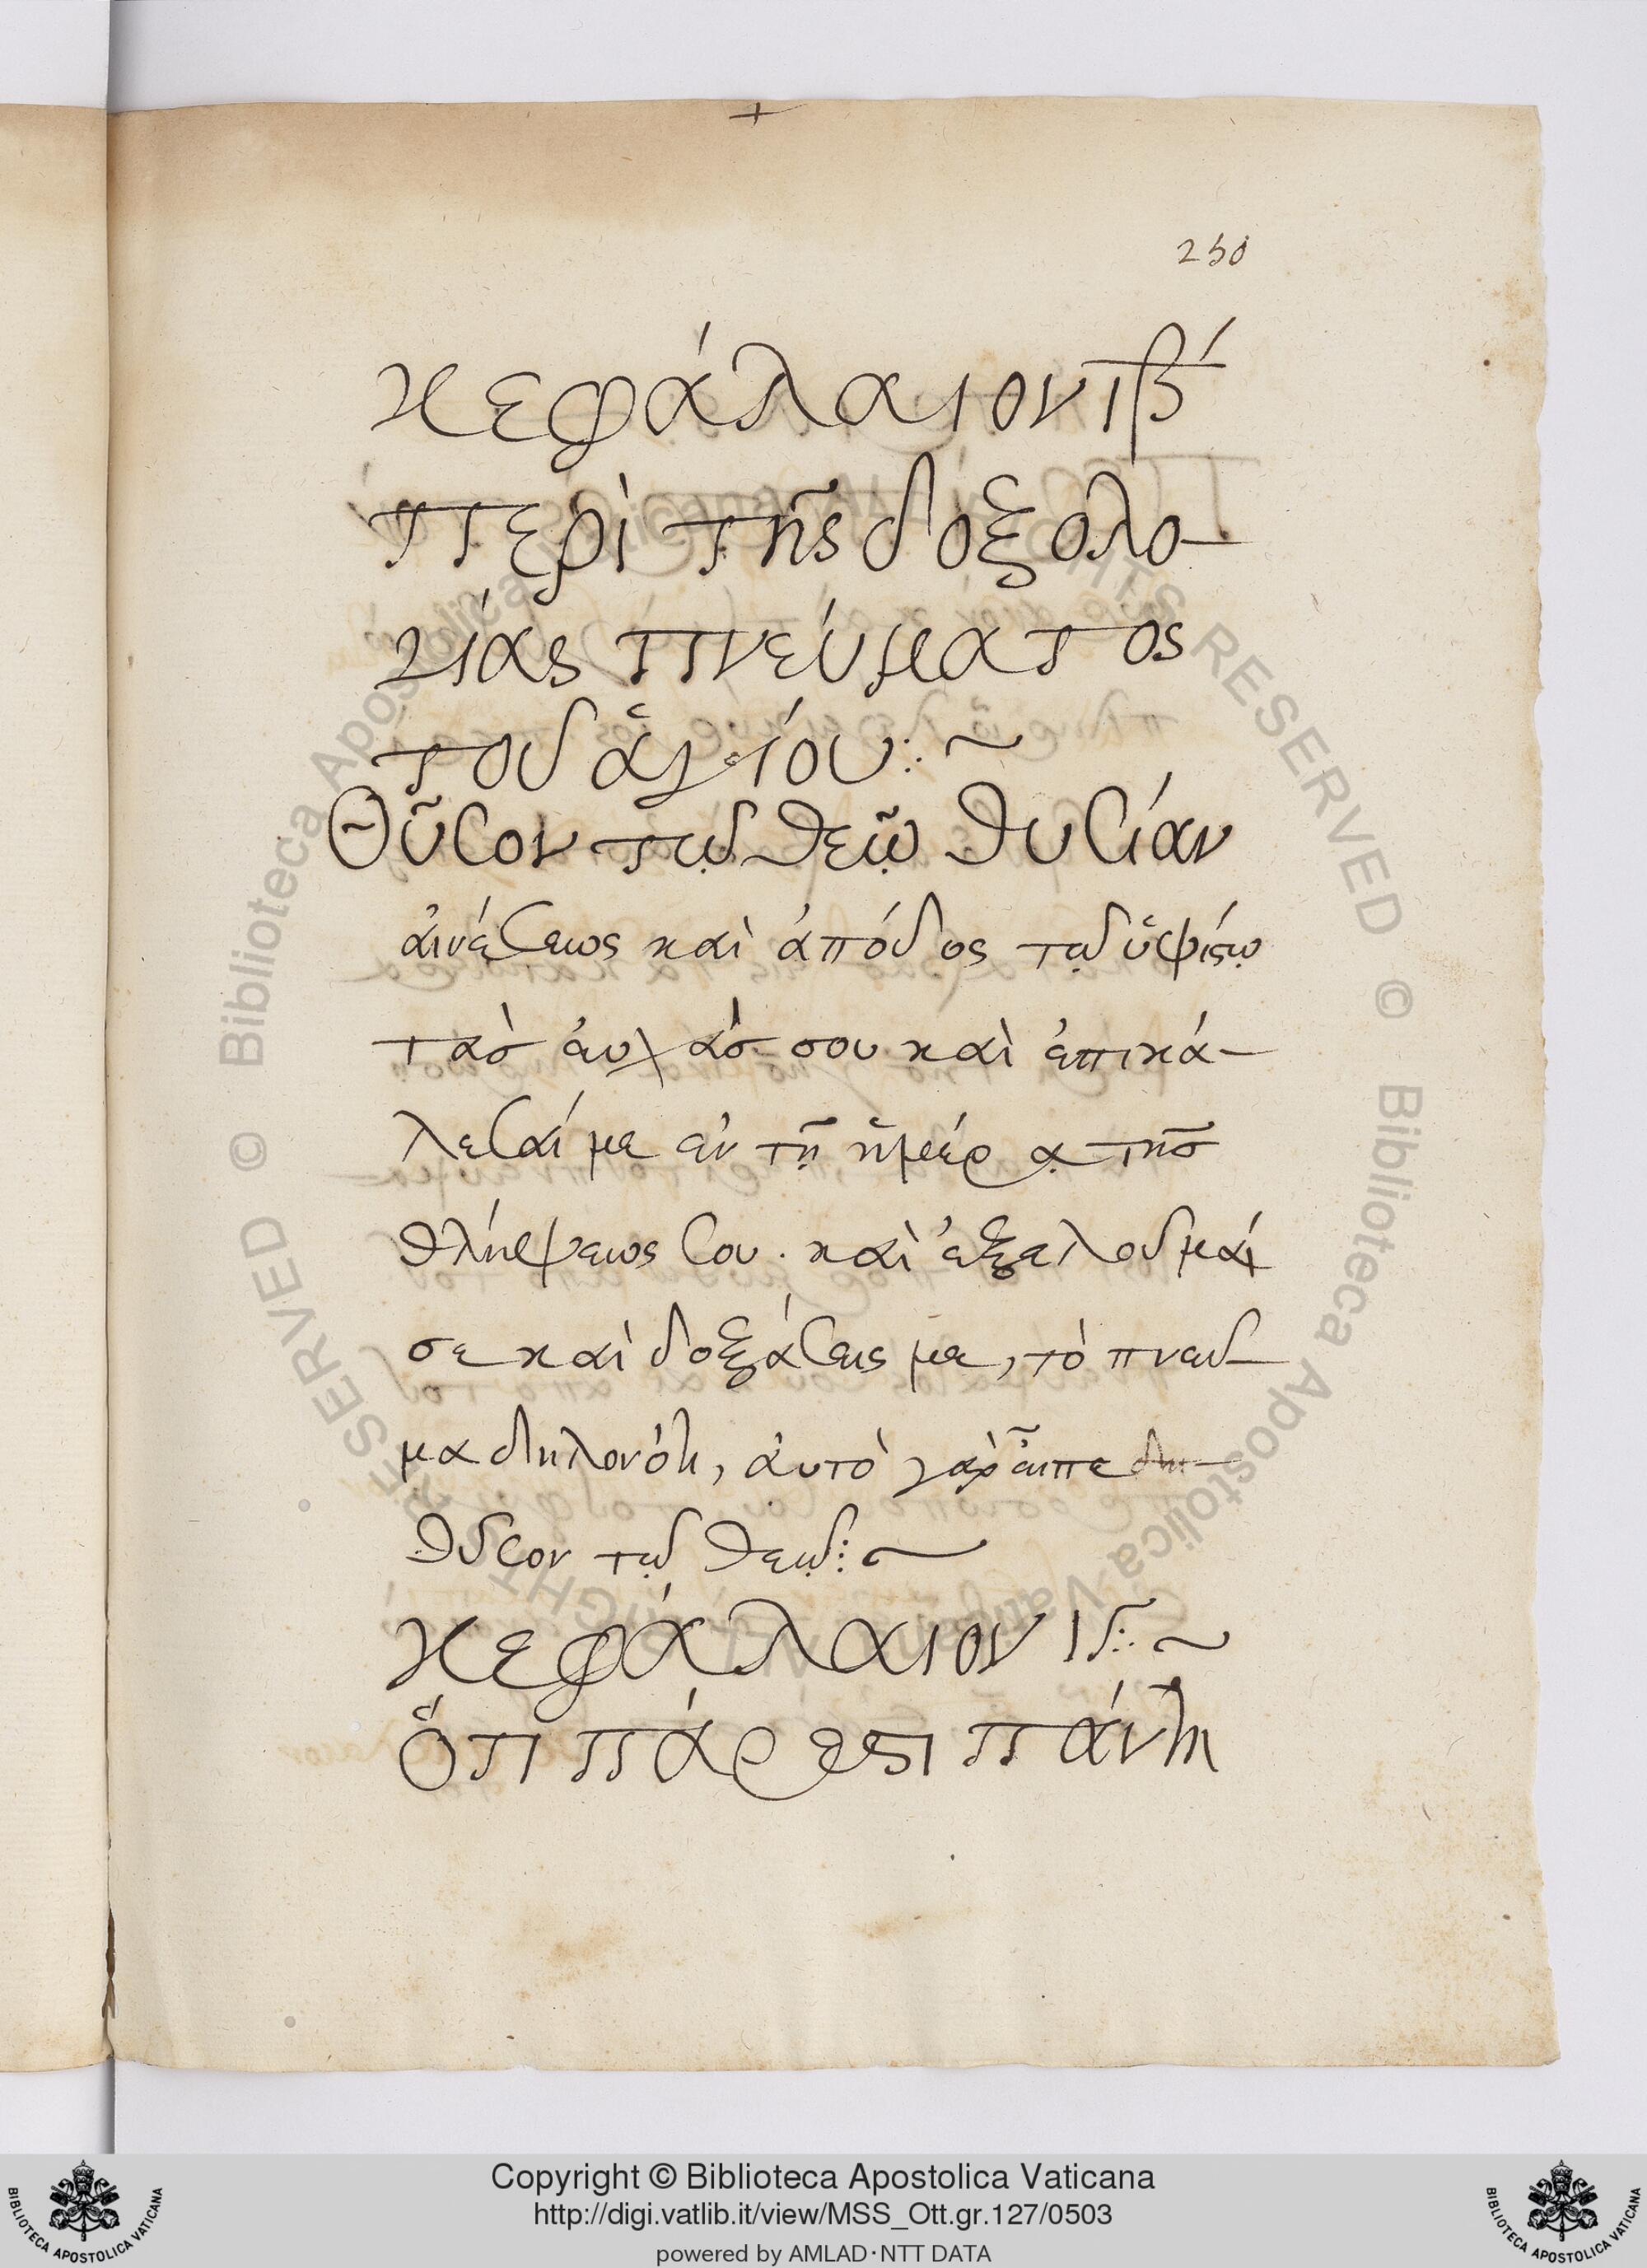 250
κεφάλαιον ιβ´
περὶ τῆς δοξολο-
γίας πνεύματος
τοῦ ἁγίου:~
Θῦσον τῷ θεῷ θυσίαν
ἀινέσεως καὶ ἀπόδος τῷ ὑψίστῳ
τὰσ ἐυχάσ σου καὶ ἐπικά-
λεσαί με ἐν τῇ ἡμέρᾳ τῆσ
θλήψεως σου· καὶ ἐξελοῦμαί
σε καὶ δοξάσεις με, τὸ πνεῦ-
μα δηλονότι, ἀυτὸ γὰρ εἶπε
θῦσον τῷ θεῷ:~
κεφάλαιον ιγ:~
Ὅτι πάρεστι πάντη
Copyright © Biblioteca Apostolica Vaticana
http://digi.vatlib.it/view/MSS_Ott.gr.127/0503
powered by AMLAD·NTT DATA
BIBLIOTECA APOSTOLICA VATICANA
BIBLIOTECA APOSTOLICA VATICANA